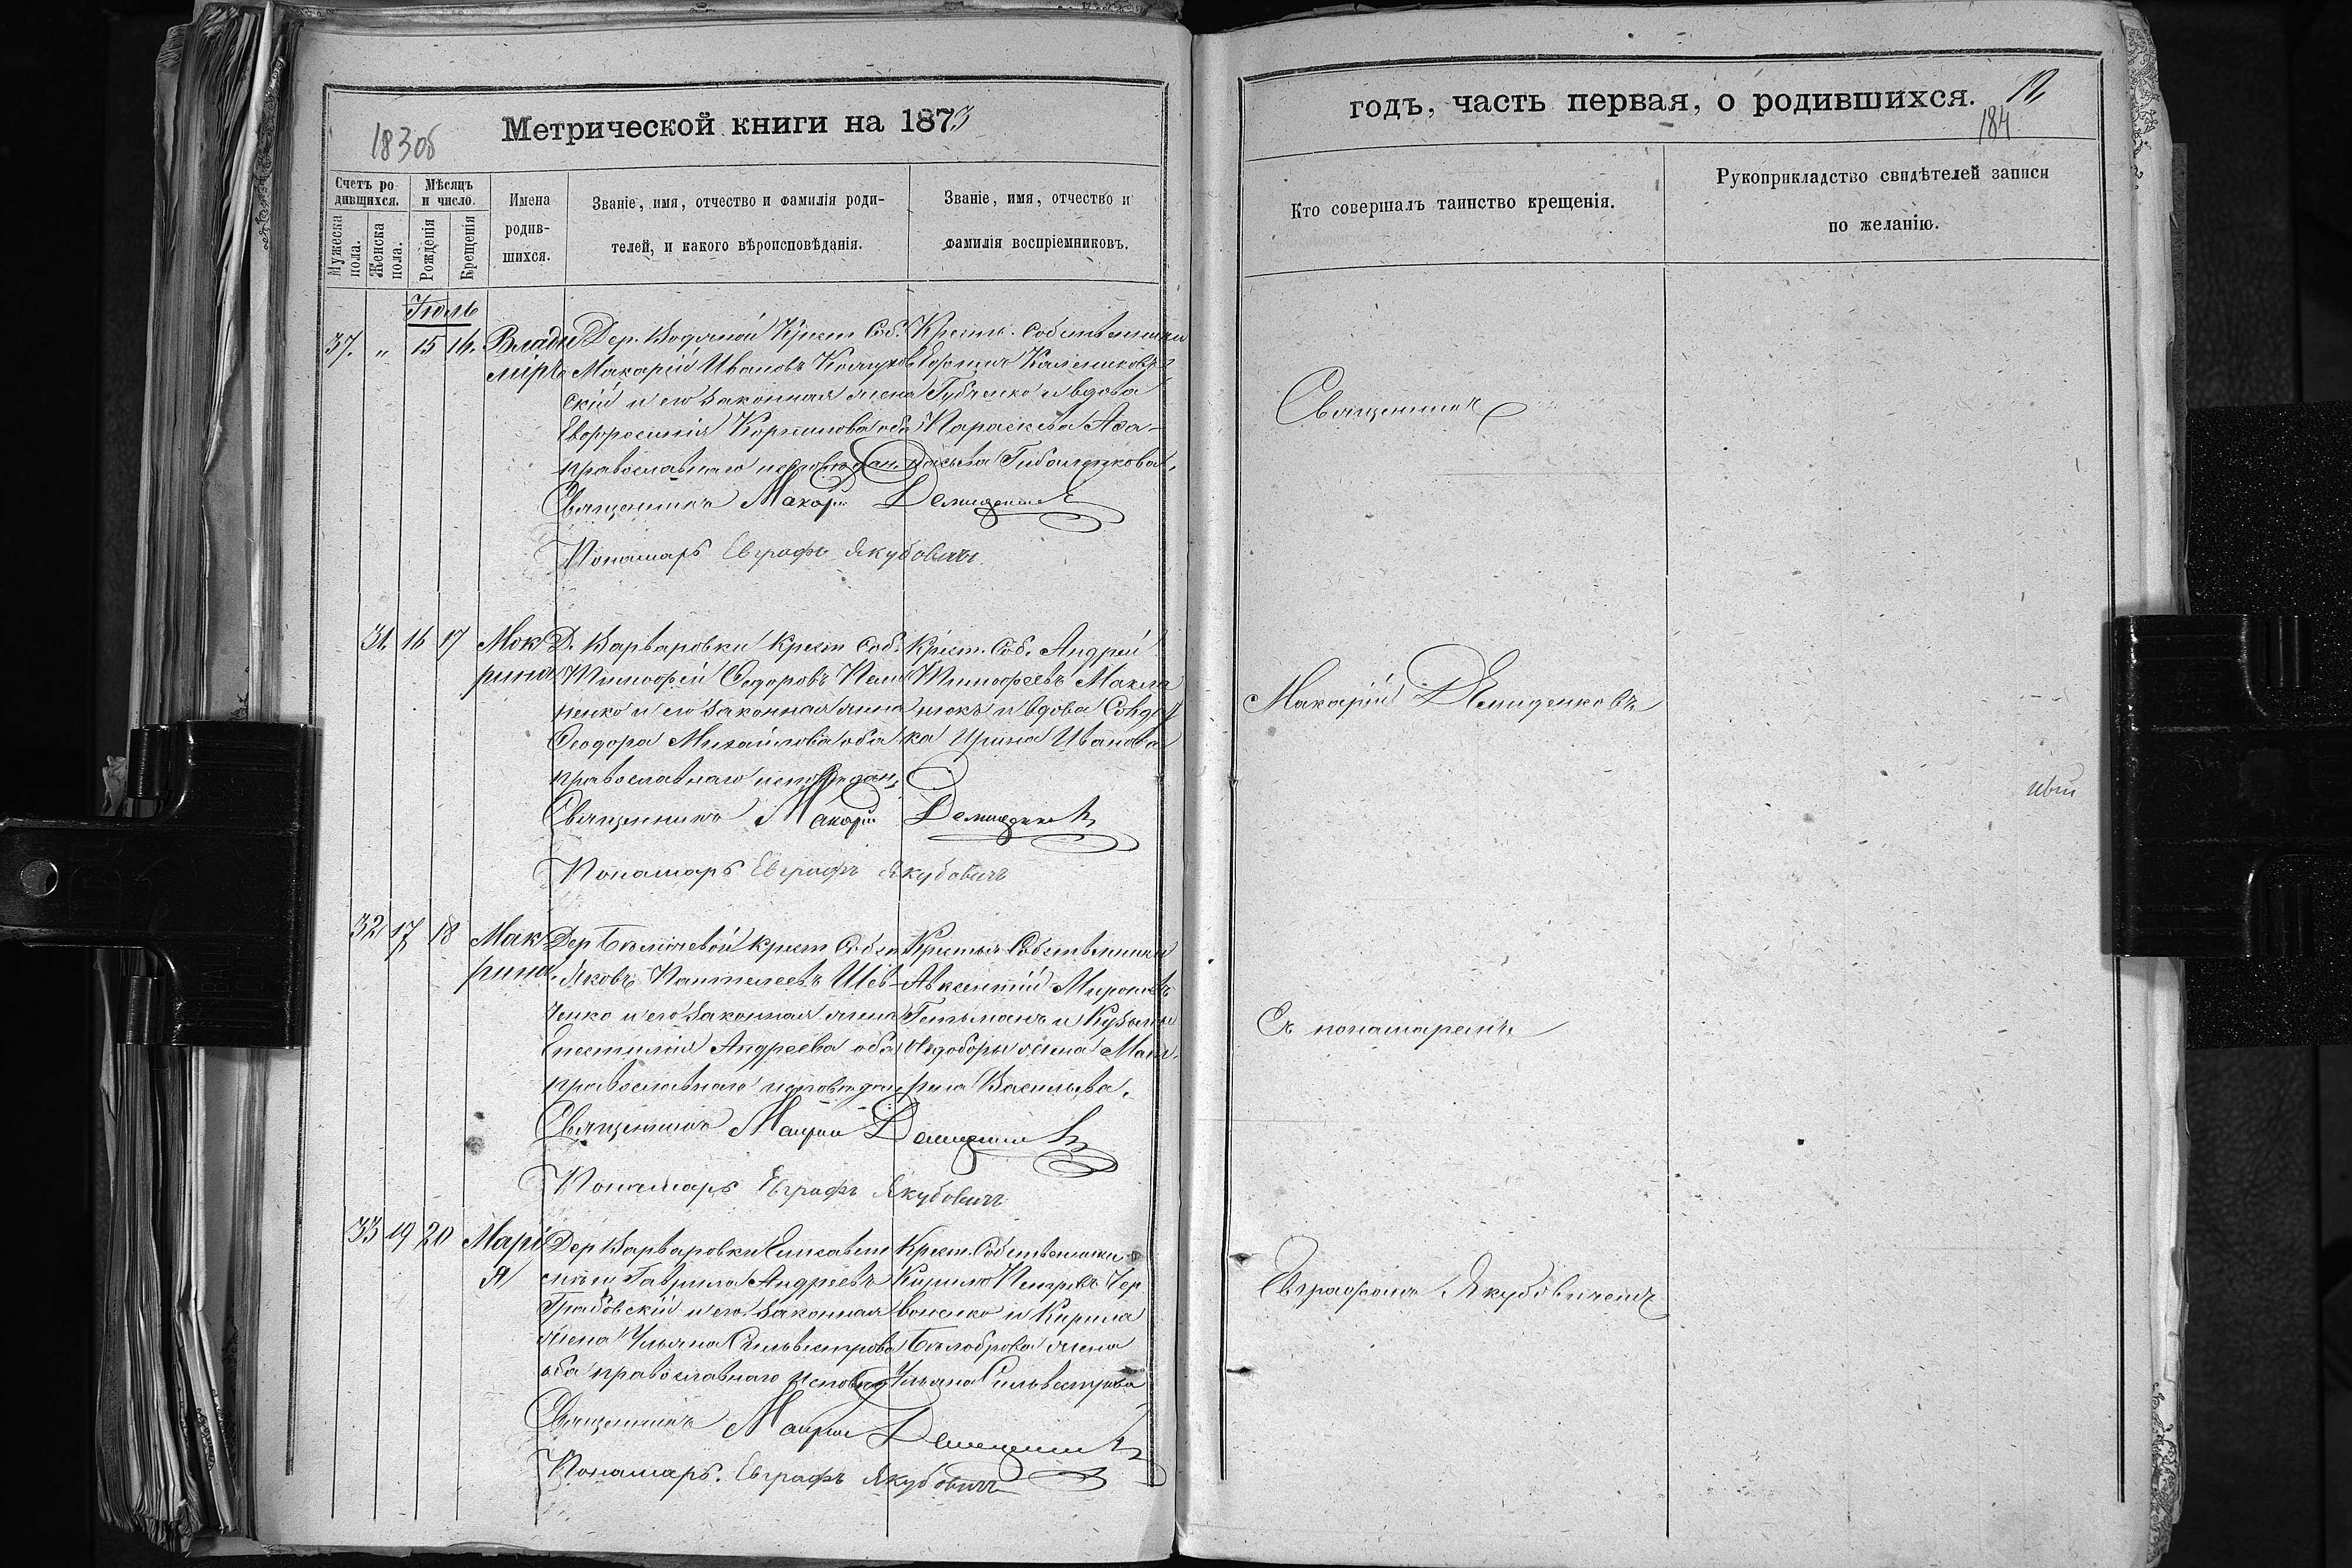 183об
Метрической книги на 1873
Счетъ родившихся.
Мужеска пола.
Женска пола.
Мѣсяцъ и число.
Рожденія
Крещенія
Имена родившихся.
Званіе, имя, отчество и фамилія родителей, и какого вѣроисповѣданія.
Званіе, имя, отчество и фамилія воспріемниковъ.
Іюль
37. " 15 16. Влади
міръ
Дер. Водяной Крест Соб.
Макарій Ивановъ
скій и его законная жена
Евфросинія оба
православнаго исповѣдан.
Крестн. Собственники
Губченко и вдова
Параскева Афа-
насьева
Священникъ Макарій Демиденковъ
Пономарь Евграфъ Якубовичъ
31. 16 17 Мок
рина
Д. Варваровки Крест Соб.
Тимофей Ѳедоровъ
ненко и его законная жена
Ѳеодора Михайлова оба
православнаго исповѣдан.
Крест. Соб. Андрей
Тимофеевъ Макла
нюкъ и вдова
ка Ирина Иванова
Священникъ Макарій Демиденковъ
Пономарь Евграфъ Якубовичъ
32 17 18 Мак
рина.
Дер Крест Собст
Яковъ Пантелеевъ Шев-
ченко и его законная жена
Андреева оба
православнаго исповѣдан
Крестьян Собственники
Авксентій Мироновъ
Гетьманъ и Кузьмы
жена Мат
рина Васильева.
Священникъ Макарій Демиденковъ
Пономарь Евграфъ Якубовичъ
33 19 20 Марі
я
Дер Варваровки
Гаврило Андреевъ
Грабовскій и его законная
жена Ульяна Сильвестрова
оба православнаго исповѣд
Крест. Собственники
Кирило Петровъ Чер
воненко и Кирила
Бѣлоброва жена
Ульяна Сильвестрова
Священникъ Макарій Демиденковъ
Пономарь. Евграфъ Якубовичъ
годъ, часть первая, о родившихся.
12
184
Кто совершалъ таинство крещенія.
Рукоприкладство свидѣтелей записи по желанію.
Священникъ
Макарій Демиденковъ
Съ пономаремъ
Евграфомъ Якубовичемъ